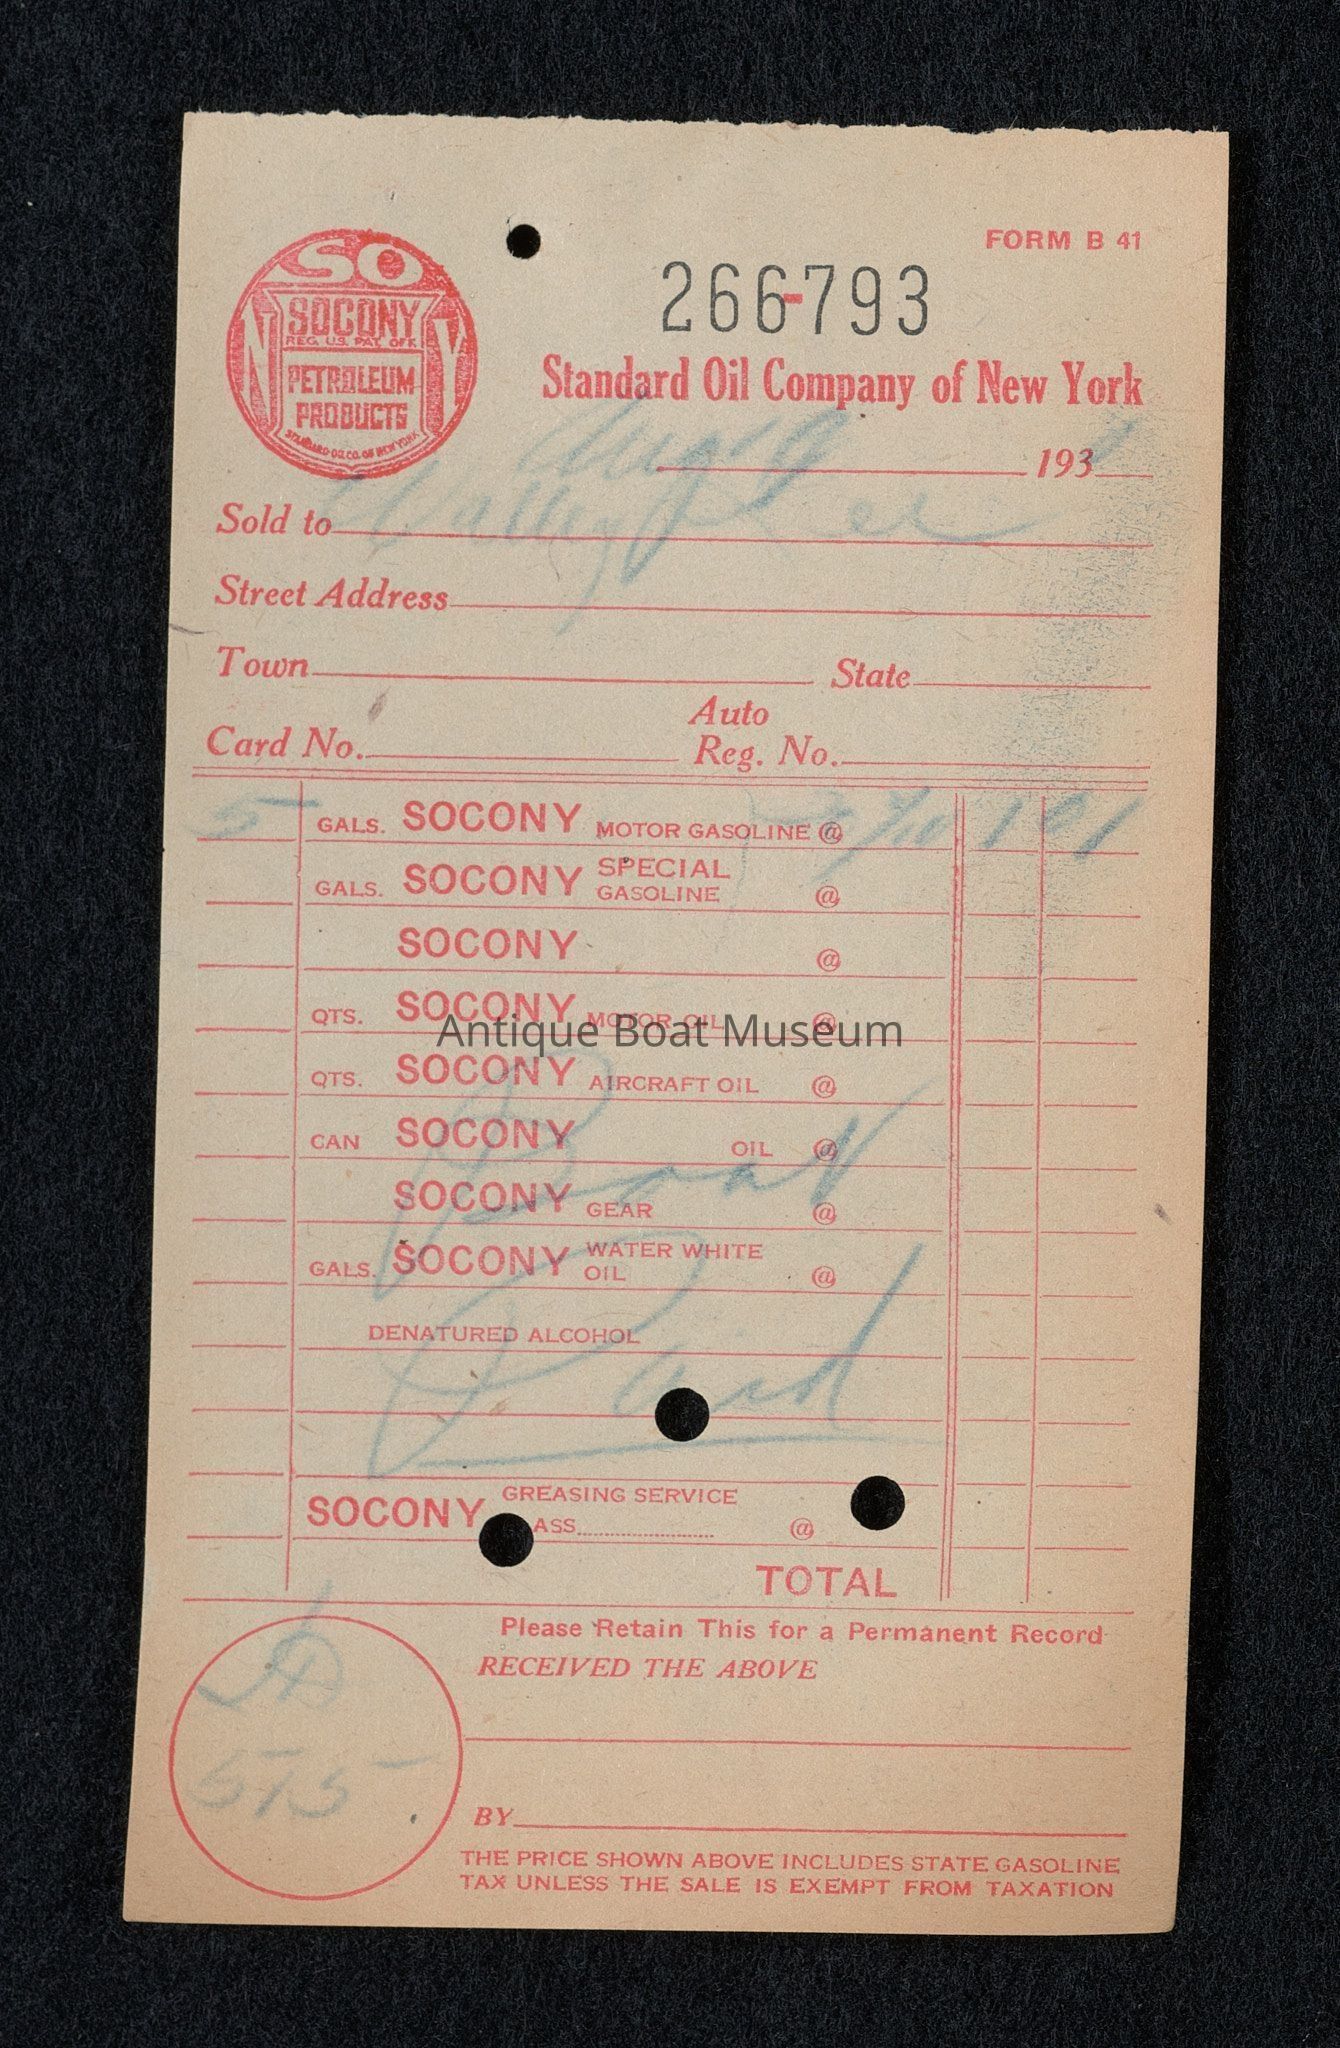 SO
NY
SOCONY
REG. U.S. PAT. OFF.
PETROLEUM
PRODUCTS
STANDARD OIL CO. OF NEW YORK
FORM B 41
266-793
Standard Oil Company of New York
Aug 9 193
Sold to
Street Address
Town State
Auto
Card No. Reg. No.
5 GALS. SOCONY MOTOR GASOLINE @ 1 01
GALS. SOCONY SPECIAL GASOLINE @
SOCONY @
QTS. SOCONY MOTOR OIL @
Antique Boat Museum
QTS. SOCONY AIRCRAFT OIL @
CAN SOCONY OIL @
Boat
SOCONY GEAR @
GALS. SOCONY WATER WHITE OIL @
DENATURED ALCOHOL
Paid
SOCONY GREASING SERVICE
ASS @
TOTAL
Please Retain This for a Permanent Record
RECEIVED THE ABOVE
575
BY
THE PRICE SHOWN ABOVE INCLUDES STATE GASOLINE
TAX UNLESS THE SALE IS EXEMPT FROM TAXATION